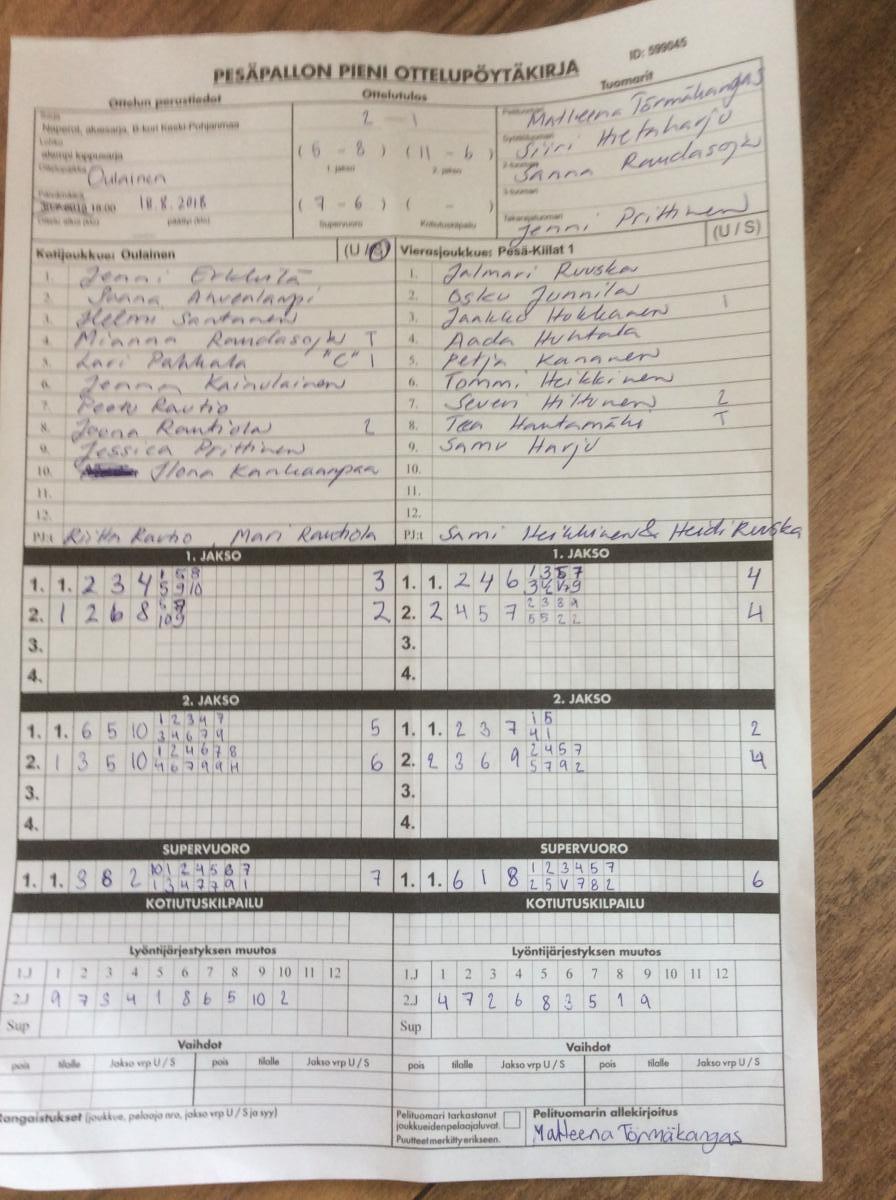 PESÄPALLON PIENI OTTELUPÖYTÄKIRJA
ID: 599045
Ottelun perustiedot
Ottelutulos
Tuomarit
Naperot, aluesarja, B-lohko Keski-Pohjanmaa
2 - 1
Matleena Törmäkangas
Siiri Hietaharju
(6 - 8) (11 - 6)
1. jakso 2. jakso
Sanna Raudasoja
Oulainen
18:00 18.8.2018
(7 - 6) ( - )
Supervuoro Kotiutuskilpailu
Jenni Prittinen
Kotijoukkue: Oulainen (U / S)
Vierasjoukkue: Pesä-Kiilat 1 (U / S)
1. Jenni Erkkilä
2. Sanna Ahvenlampi
3. Helmi Santanen
4. Minna Raudasoja T
5. Lari Pahkala "C" 1
6. Jenna Kainulainen
7. Peetu Rautio
8. Joona Rautiola 2
9. Jessica Prittinen
10. Ilona Kankaanpaa
11.
12.
PJ:t Riitta Rautio, Mari Rautiola
1. Jalmari Ruuska
2. Osku Junnila
3. Jaakko Hokkanen 1
4. Aada Huhtala
5. Petja Kananen
6. Tommi Heikkinen
7. Severi Hiltunen 2
8. Tea Hautamäki T
9. Samu Harju
10.
11.
12.
PJ:t Sami Heikkinen & Heidi Ruuska
1. JAKSO 1. JAKSO
1. 1. 2 3 4 3
1. 1. 2 4 6 4
2. 1 2 6 8 2
2. 2 4 5 7 4
3. 3.
4. 4.
2. JAKSO 2. JAKSO
1 2 3 4 7
1. 1. 6 5 10 5
3 4 6 7 9
1 5
1. 1. 2 3 7 2
4 1
1 2 4 6 7 8
2. 1 3 5 10 6
2 4 5 7
2. 2 3 6 9 4
5 7 9 2
3. 3.
4. 4.
SUPERVUORO SUPERVUORO
10 1 2 4 5 6 7
1. 1. 3 8 2 7
1 3 4 7 7 9 1
1 2 3 4 5 7
1. 1. 6 1 8 6
2 5 V 7 8 2
KOTIUTUSKILPAILU KOTIUTUSKILPAILU
Lyöntijärjestyksen muutos Lyöntijärjestyksen muutos
1.J 1 2 3 4 5 6 7 8 9 10 11 12
1.J 1 2 3 4 5 6 7 8 9 10 11 12
2.J 9 7 3 4 1 8 6 5 10 2
2.J 4 7 2 6 8 3 5 1 9
Sup Sup
Vaihdot Vaihdot
pois tilalle Jakso vrp U / S pois tilalle Jakso vrp U / S
pois tilalle Jakso vrp U / S pois tilalle Jakso vrp U / S
Rangaistukset (joukkue, pelaaja nro, jakso vrp U / S ja syy)
Pelituomari tarkastanut
joukkueiden pelaajaluvat.
Puutteet merkitty erikseen.
Pelituomarin allekirjoitus
Matleena Törmäkangas